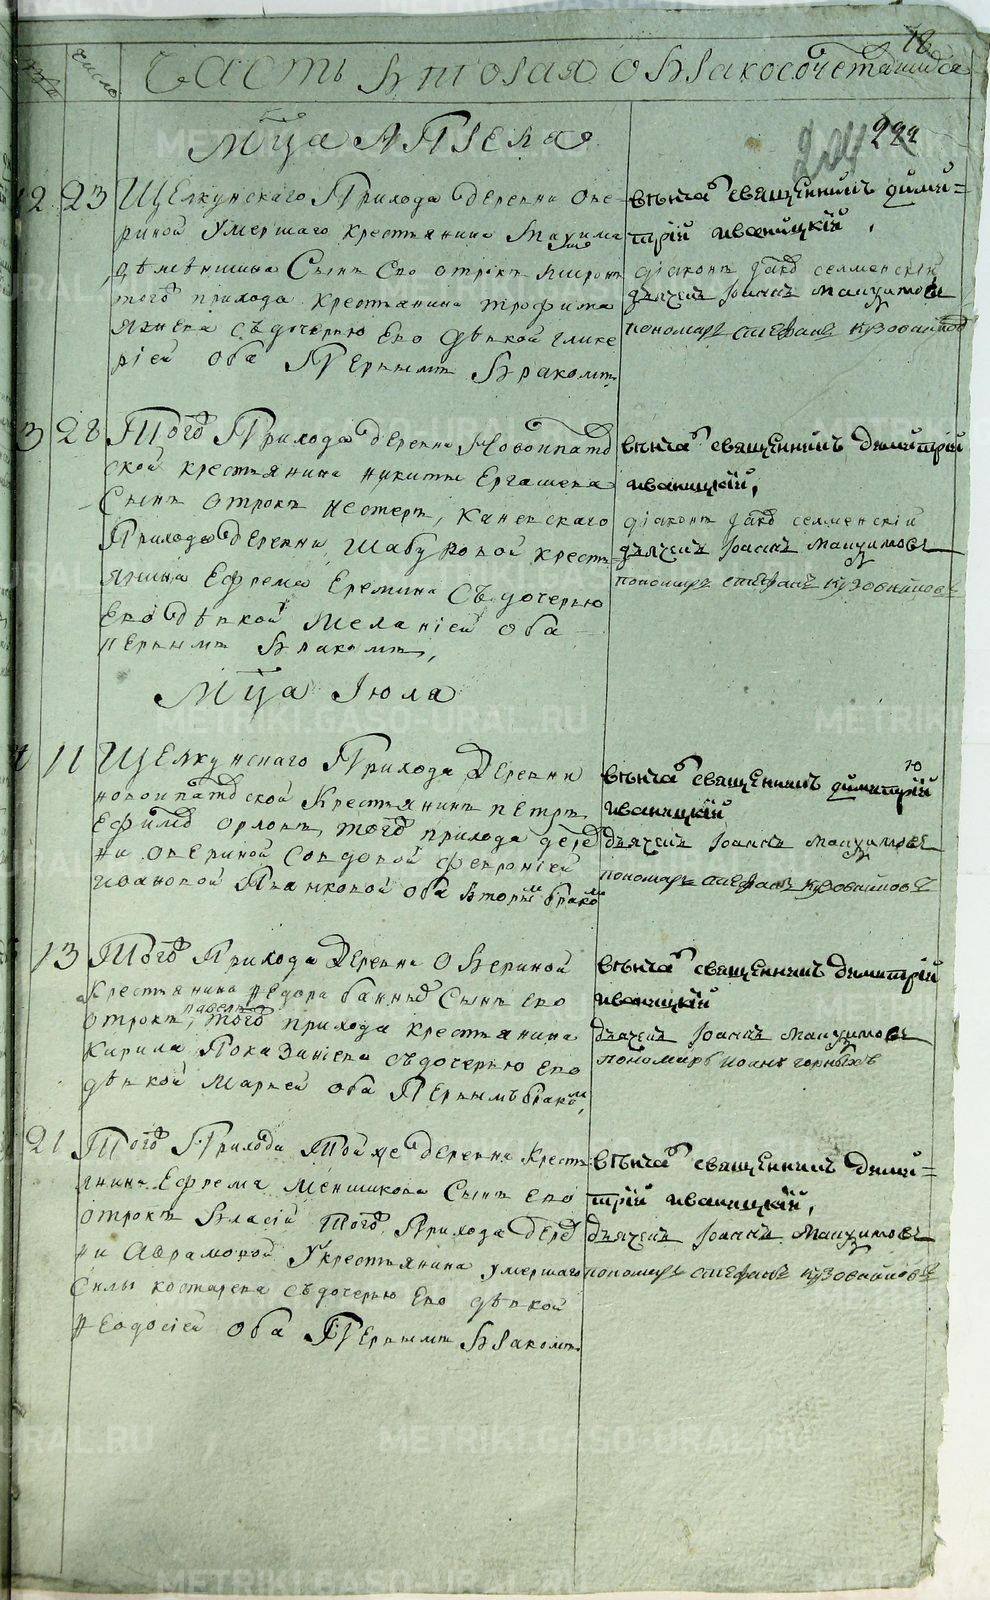 18
число
Часть вторая о бракосочетавшихся
222
Мца Апрела
12 23 Щелкунскаго Прихода деревни Ове-
риной умершаго крестьянина Маxима
сынъ его отрокъ миронъ
того прихода крестьянина трофима
съ дочерью его девкой глике
ріей оба Первымъ Бракомъ
венчалъ священникъ дими=
трій иваницкій,
діаконъ селменскій
дьячекъ Іоаннъ Мануиловъ
пономарь стефанъ кузовниковъ
3 28 Того Прихода деревни Новоипато
ской крестьянина никиты Ергашева
Сынъ отрокъ нестеръ, Каневскаго
Прихода деревни Шабуровой кресть
янина Ефрема Еремина съ дочерью
его девкой Меланіей оба
первымъ Бракомъ,
венчалъ священникъ Димитрій
иваницкій,
діаконъ селменскій
дьячекъ Іоаннъ Мануиловъ
пономарь стефанъ кузовниковъ
Мца Іюла
11 Щелкунскаго Прихода Деревни
новоипатовской Крестьянинъ петръ
Ефимов орловъ, того прихода дерев
ни овериной вдовой февроніей
ивановой Пьанковой оба вторымъ бракомъ
венчалъ священникъ димитрій
иваницкій
дьячекъ Іоаннъ Мануиловъ
пономарь стефанъ кузовниковъ
13 Того Прихода Деревни Овериной
крестьянина Федора банных Сынъ его
павелъ
отрокъ, того прихода крестьянина
Кирила Показаніева съ дочерью его
девкой Марьей оба Первымъ бракомъ,
венчалъ священникъ димитрій
иваницкій
дьячекъ Іоаннъ Мануиловъ
пономарь иоанъ горныхъ
21 Того Прихода Той же деревни Кресть
янина Ефрема Меншикова Сынъ его
отрокъ Власій того Прихода дерев
ни Аврамовой Укрестьянина умершаго
Силы костарева съ дочерью его девкой
Феодосіей оба Первымъ Бракомъ.
венчалъ священникъ дими=
трій иваницкій,
дьячекъ Іоаннъ Мануиловъ
пономарь стефанъ кузовниковъ
METRIKI.GASO-URAL.RU